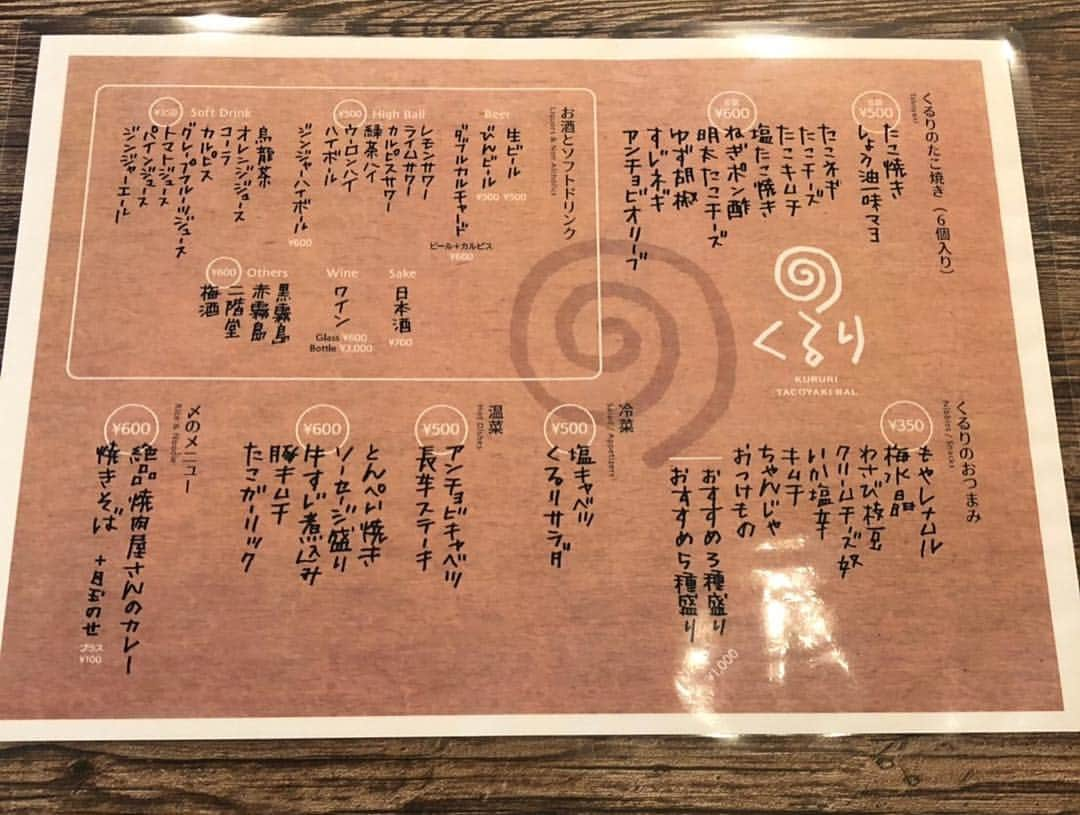 くるりのたこ焼き（6個入り）
各種
¥500
たこ焼き
しょう油一味マヨ
各種
¥600
たこネギ
たこチーズ
たこキムチ
塩たこ焼き
ねぎポン酢
明太たこチーズ
ゆず胡椒
すじネギ
アンチョビオリーブ
くるり
KURURI
TACOYAKI BAL
お酒とソフトドリンク
Liquors & Non Alcoholics
Beer
生ビール
¥500
びんビール
¥500
ダブルカルチャード
ビール＋カルピス
¥600
¥500
High Ball
レモンサワー
ライムサワー
カルピスサワー
緑茶ハイ
ウーロンハイ
ハイボール
ジンジャーハイボール
¥600
¥350
Soft Drink
烏龍茶
オレンジジュース
コーラ
カルピス
グレープフルーツジュース
トマトジュース
パインジュース
ジンジャーエール
Sake
日本酒
¥700
Wine
ワイン
Glass ¥600
Bottle ¥3,000
¥600
Others
黒霧島
赤霧島
二階堂
梅酒
くるりのおつまみ
Nibbles / Snacks
¥350
もやしナムル
梅水晶
わさび枝豆
クリームチーズ奴
いか塩辛
キムチ
ちゃんじゃ
おつけもの
おすすめ3種盛り
おすすめ5種盛り
1,000
冷菜
Salad / Appetizers
¥500
塩キャベツ
くるりサラダ
温菜
Hot Dishes
¥500
アンチョビキャベツ
長芋ステーキ
¥600
とんぺい焼き
ソーセージ盛り
牛すじ煮込み
豚キムチ
たこガーリック
〆のメニュー
Rice & Noodle
¥600
絶品焼肉屋さんのカレー
焼きそば
+目玉のせ
プラス
¥100